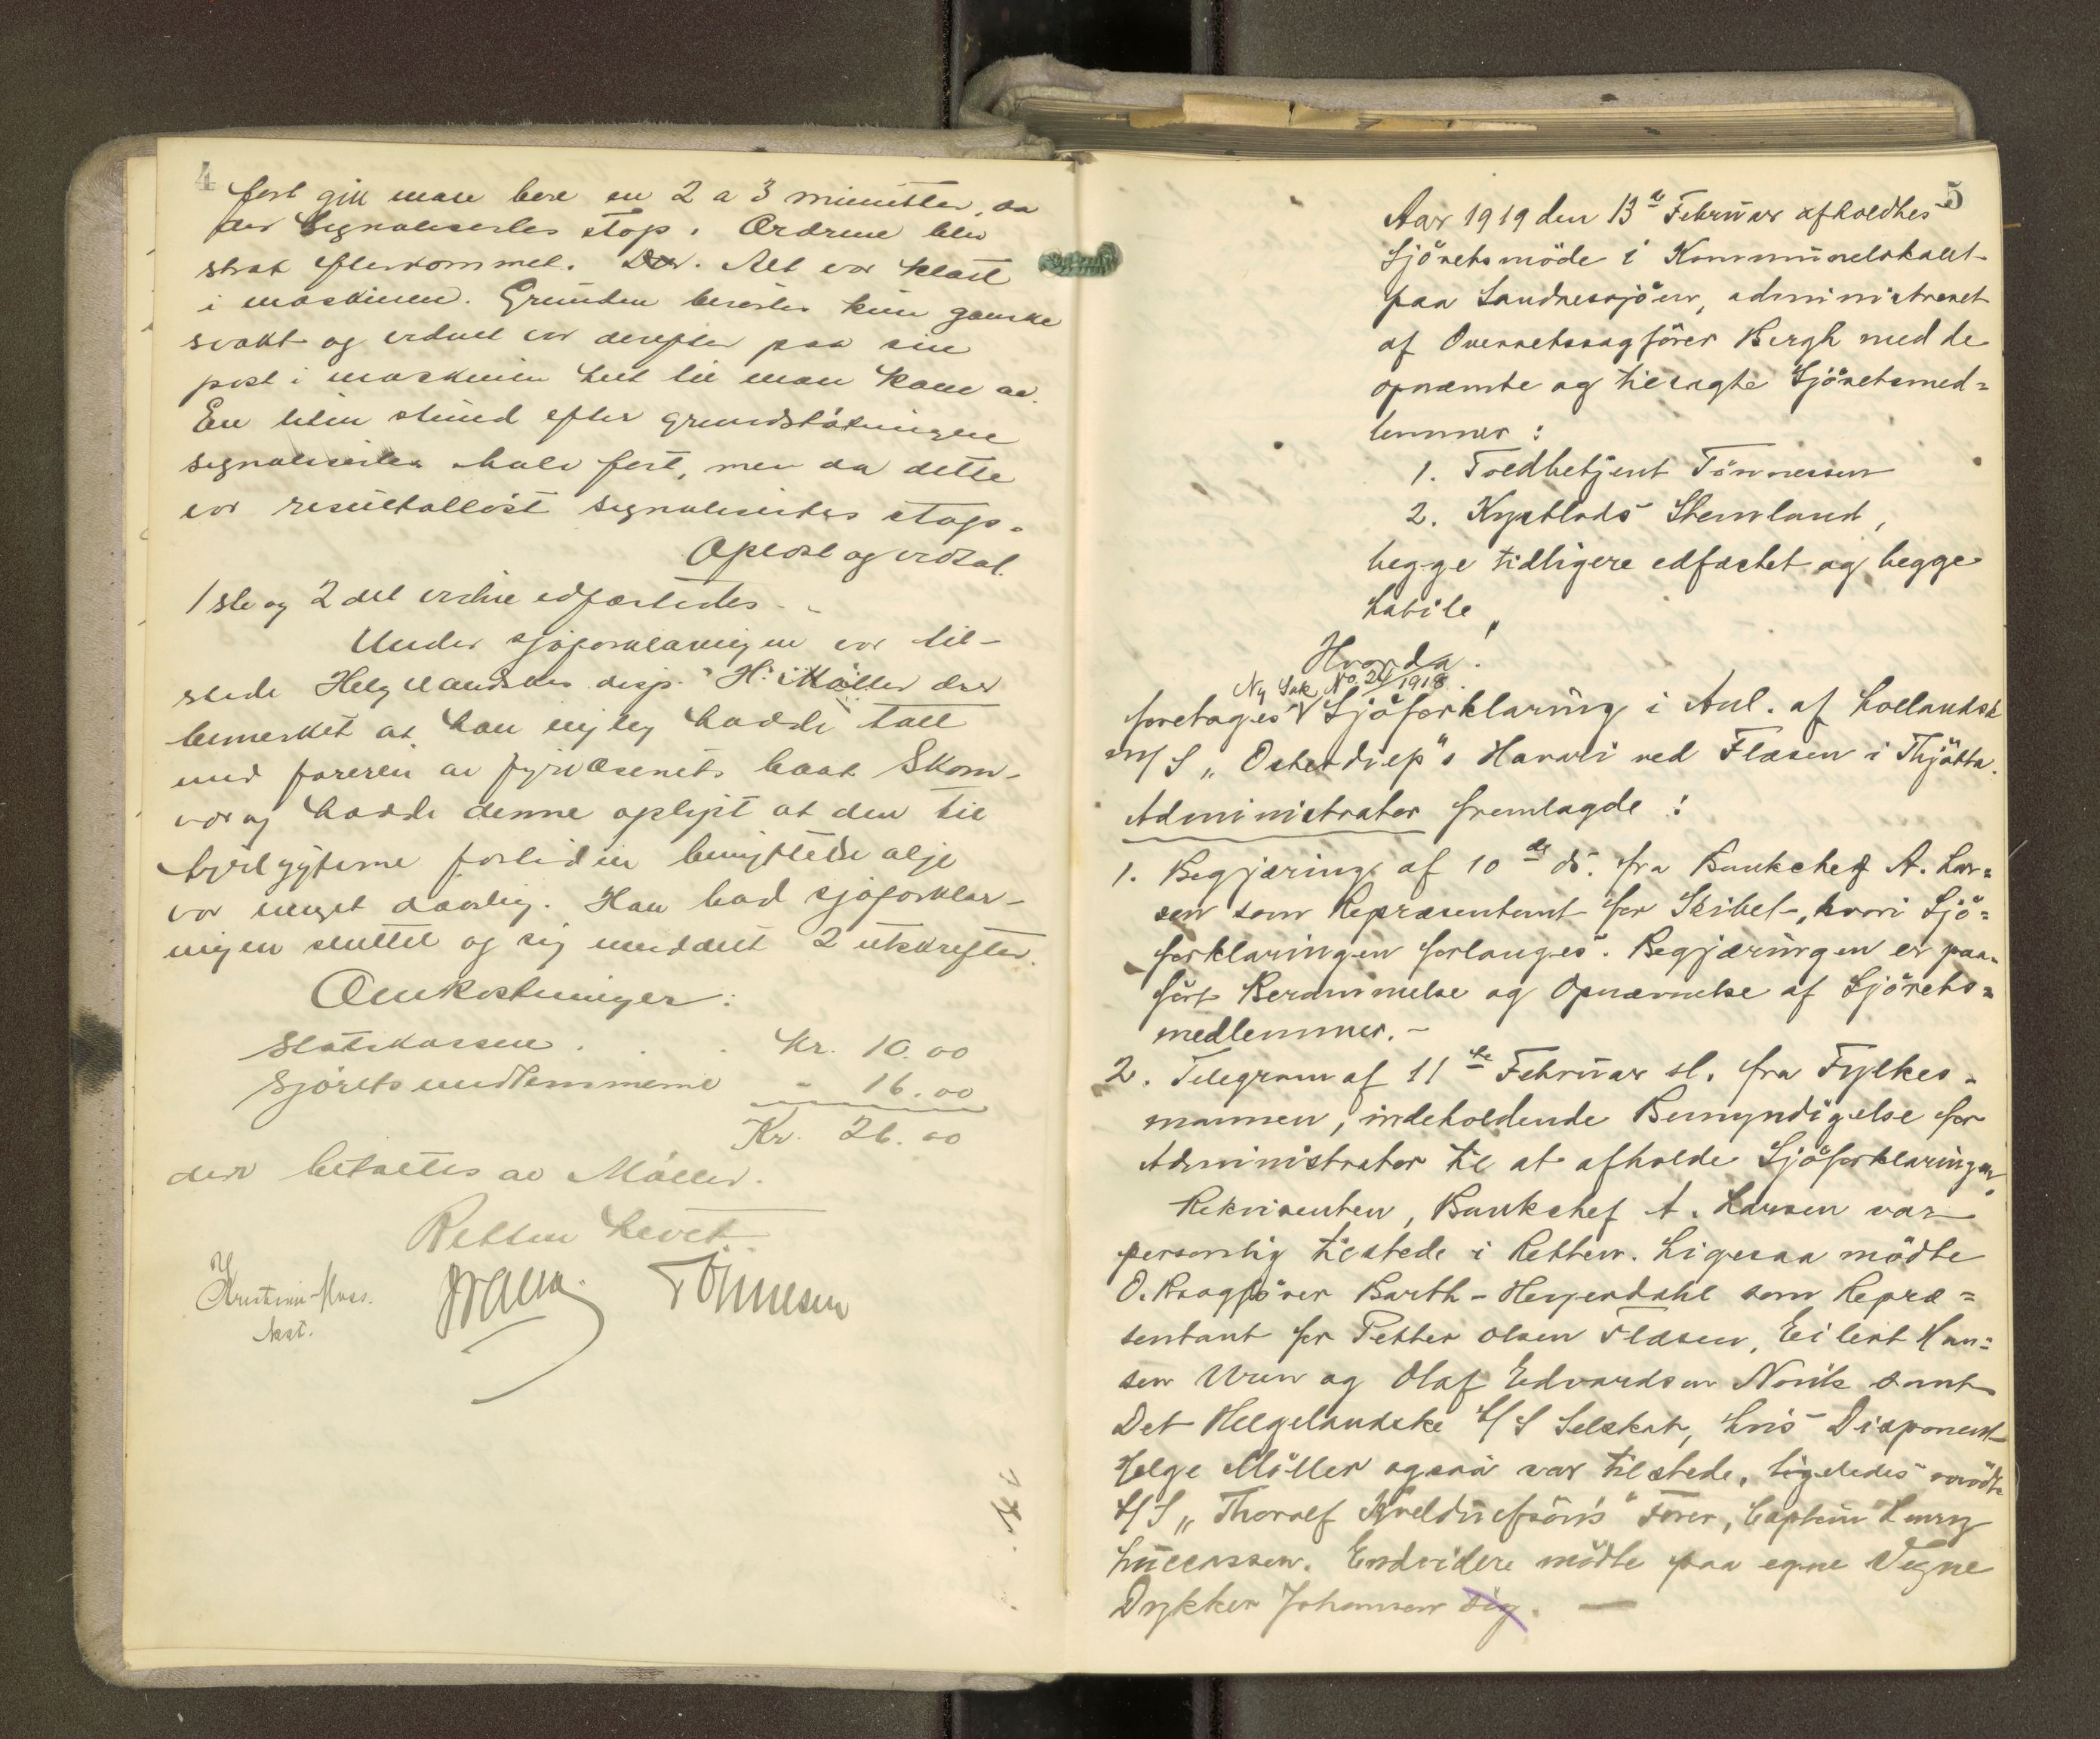 4
fort gik man bare en 2 a 3 minutter, da
der signaliserles stop. Ordrene blev
strax efterkommet. Der. Alt var klart
i maskinen. Grunden berörtes kun ganske
svakt og vidnet var derefter paa sin
post i maskinen helt til man kom av.
En liten stund efter grundstötningen
signaliseiles halv fart, men da dette
var resultatlöst signaliseites stop.
Oplæst og vedtat.
1ste og 2det vidne edfæstedes.
Under sjöforklaringen var til-
stede Helgelandskes disp. H. Möller der
bemerket at han nylig hadde talt
med föreren av fyrvæsenets baat Skom-
vær og hadde denne oplyst at den til
fyrlygterne for tiden benyttede olje
var meget daarlig. Han bad sjöforklar-
ingen sluttet og sig meddelt 2 utskrifter.
Omkostninger:
Statskassen . . . Kr. 10.00
Sjöretsmedlemmerne - 16.00
Kr. 26.00
der betaltes av Möller.
Retten hevet
Kristian Moss. Tönnesen
Asst.
5
Aar 1919 den 13de Februar afholdtes
Sjöretsmöde i Kommunelokalet
paa Sandnessjöen, administreret
af Overretssagförer Bergh med de
opnævnte og tilsagte Sjöretsmed=
lemmer:
1. Toldbetjent Tönnessen
2. Kystlods Stenland,
begge tidligere edfæstet og begge
habile,
Hvorda.
Ny Sak No. 24/1918.
foretages Sjöforklaring i Anl. af hollandsk
M/S „Osterdiep"s Havari ved Flæsen i Thjötta.
Administrator fremlagde:
1. Begjæring af 10de ds. fra Bankchef A. Lar=
sen som Repræsentant for Skibet, hvori Sjö=
forklaringen forlanges. Begjæringen er paa-
fört Berammelse og Opnævnelse af Sjörets=
medlemmer. -
2. Telegram af 11te Februar sl. fra Fylkes-
mannen, indeholdende Bemyndigelse for
Administrator til at afholde Sjöforklaringen.
Rekvirenten, Bankchef A. Larsen var
personlig tilstede i Retten. Ligesaa mödte
O.Rsagförer Barth-Heyerdahl som Repræ=
sentant for Petter Olsen Flæsen, Eilert Han=
sen Uren og Olaf Edvardsen Novik samt
Det Helgelandske D/S Selskab, hvis Disponent
Helge Möller ogsaa var tilstede, ligeledes mödte
D/S „Thorolf Kveldulfsön's" Förer, Captein
Lucassen. Endvidere mödte paa egne Vegne
Dykker Johansen sig. —